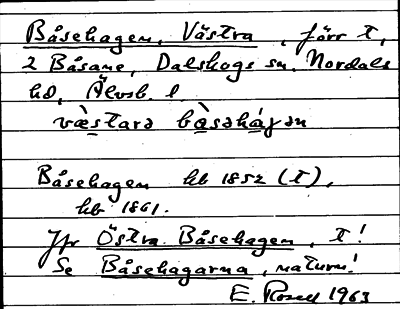 Båsehagen, Västra, förr t,
2 Båsane, Dalskogs sn. Nordals
hd, Älvsb. l
væ̀stara bàsəháɡən
Båsehagen hb 1852 (t),
hb 1861.
Jfr Östra Båsehagen, t!
Se Båsehagarna, naturn!
E. Rosell 1963